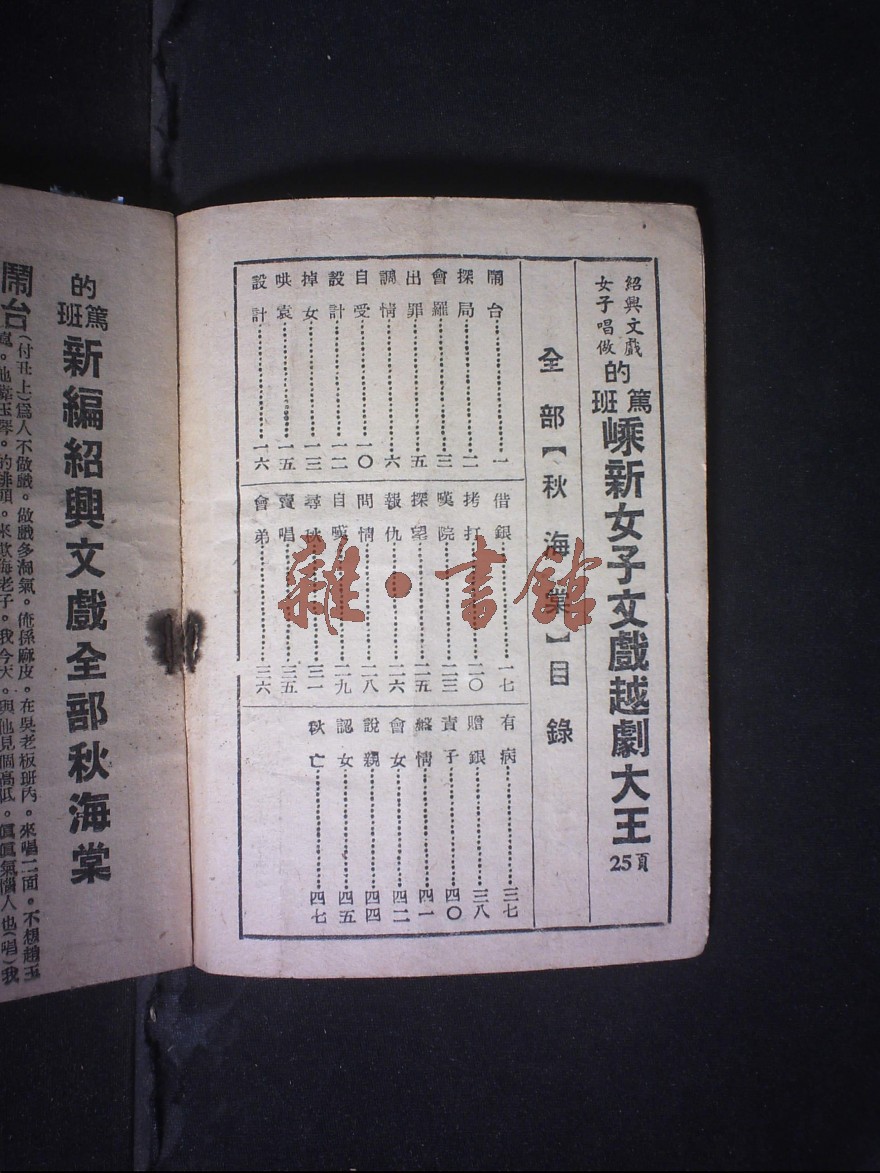 紹興文戲
女子唱做
的篤班
嵊新女子文戲越劇大王
25頁
全部【秋海棠】目錄
鬧台……一
探局……二
會羅……三
出罪……五
調情……六
自受……一〇
設計……一二
掉女……一三
哄袁……一五
設計……一六
借銀……一七
拷打……二〇
嘆院……二三
探望……二五
報仇……二六
問情……二八
自嘆……二九
尋秋……三一
賣唱……三五
會弟……三六
有病……三七
贈銀……三八
責子……四〇
總情……四一
會女……四二
說親……四四
認女……四五
秋亡……四七
的篤班
新編紹興文戲全部秋海棠
鬧台(付丑上)爲人不做戲。做戲多淘氣。俺係麻皮。在吳老板班內。來唱二面。不想趙玉
來欺海老子。我今天。與他見個高低。眞眞氣惱人也(唱)我
雜·書館